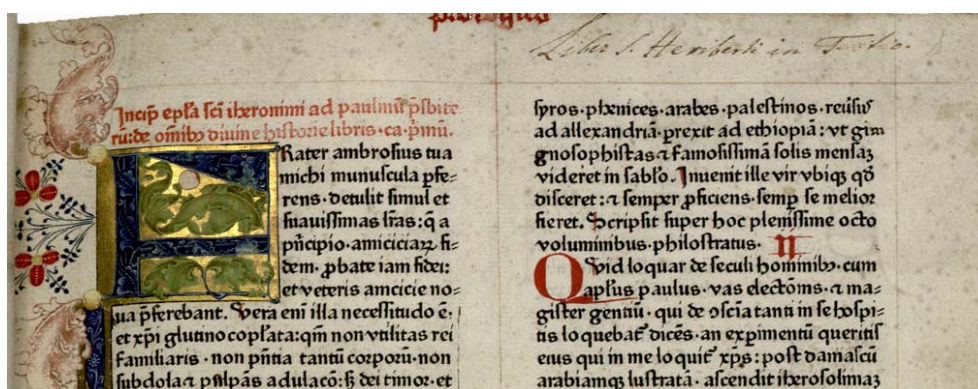 prologus
Liber S. Heriberti in Tuitio.
Incip̃ ep̃la sc̃i iheronimi ad paulinũ p̃sbite
rũ: de om̃ibꝫ diuine historie libris · ca · p̃mũ.
FRater ambrosius tua
michi munuscula ꝑfe-
rens · detulit simul et
suauissimas l̃ras: q̃ a
pñcipio · amiciciaꝝ fi-
dem · ꝓbate iam fidei:
et veteris amcicie no-
ua p̃ferebant. Vera eni illa necessitudo ẽ ·
et xp̃i glutino cop̃lata: qm̃ non vtilitas rei
familiaris · non p̃ntia tantũ corpoꝝ · non
subdola ⁊ palpãs adulacõ: sꝫ dei timor · et
syros · phenices · arabes · palestinos · reũsus
ad allexandriã · prexit ad ethiopiã: vt gim
gnosophistas ⁊ famosissimã solis mensaꝫ
videret in sablo. Inuenit ille vir vbiqꝫ qđ
disceret: ⁊ semper ꝓficiens · semꝑ se melior
fieret. Scripsit super hoc plenissime octo
voluminibus · philostratus. II
QVid loquar de seculi hominibꝫ · cum
apl̃us paulus · vas electõnis · ⁊ ma-
gister gentiũ · qui de ↄscia tanti in se hospi-
tis loquebat̃ dicẽs · an exꝑimentũ queritis
eius qui in me loquit̃ xp̃s: post damascũ
arabiamqꝫ lustratã · ascendit iherosolimaꝫ